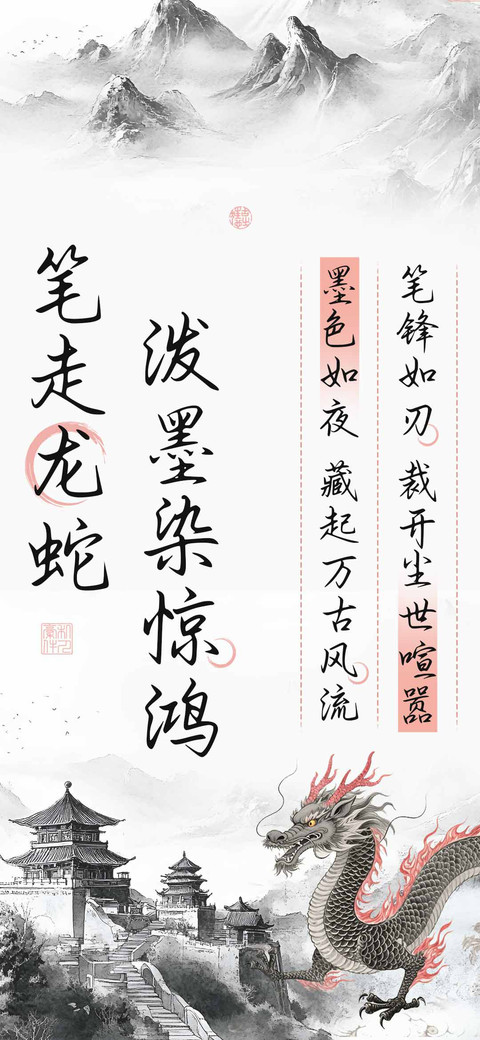 笔锋如刃 裁开尘世喧嚣
墨色如夜 藏起万古风流
泼墨染惊鸿
笔走龙蛇